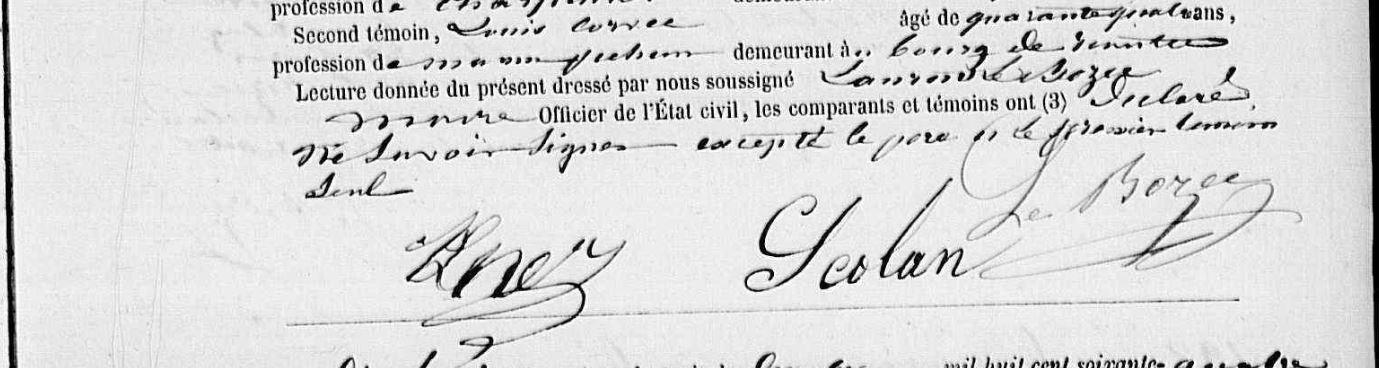 profession de
Second témoin, Louis Corre âgé de quarante quatre ans,
profession de demeurant à bourg de
Lecture donnée du présent dressé par nous soussigné Laurent Le Bozec
maire Officier de l'État civil, les comparants et témoins ont (3) déclaré
ne savoir signer excepté le père et le premier témoin
seul
Le Bozec
Scolan
mil huit cent soixante-quatre